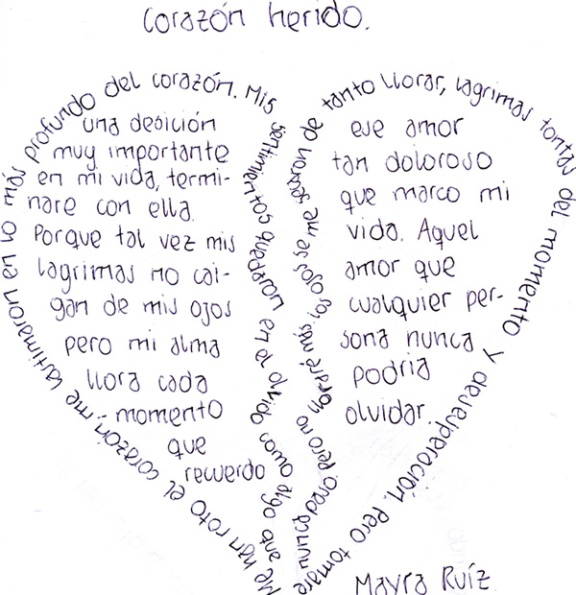 Corazón herido.
Me han roto el corazón, me lastimaron en lo más profundo del corazón. Mis
sentimientos quedaron en olvido como algo que
nunca pasó, pero no lloraré más, los ojos se me secaron de
tanto llorar, lagrimas tontas del momento y desesperación. Pero tomare
una desición
muy importante
en mi vida, termi-
nare con ella.
Porque tal vez mis
lagrimas no cai-
gan de mis ojos
pero mi alma
llora cada
momento
que
recuerdo
ese amor
tan doloroso
que marco mi
vida. Aquel
amor que
cualquier per-
sona nunca
podria
olvidar.
Mayra Ruíz